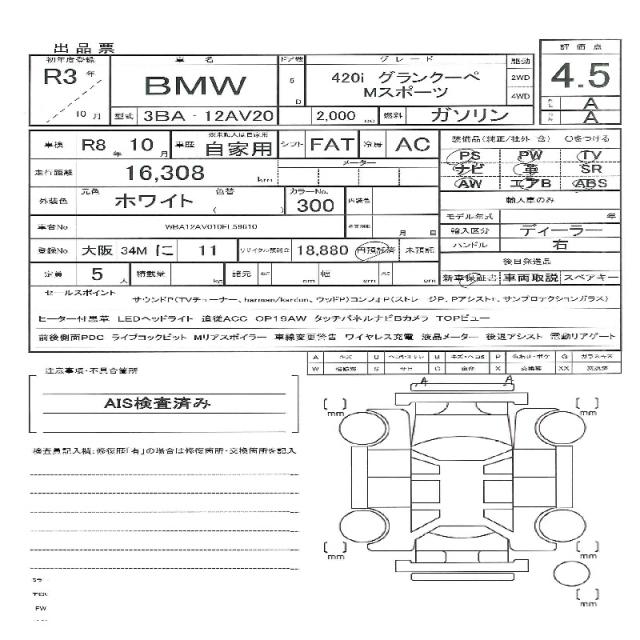 出品票
初年度登録 車名 ドア数 グレード 駆動 評価点
R3年 BMW 5 D 420i グランクーペ Mスポーツ 2WD 4WD 4.5
10月 型式 3BA - 12AV20 2,000 燃料 ガソリン A A
車検 R8年 10月 車歴 自家用 シフト FAT 冷房 AC 装備品(純正/社外 含) ○をつける
走行距離 16,308 km メーター
PS PW TV
ナビ 革 SR
AW エアB ABS
外装色 元色 ホワイト 色替 ( ) カラーNo. 300 内装色
輸入車のみ
モデル年式 年
車台No 月 日
輸入区分 ディーラー
ハンドル 右
登録No 大阪 34M に 11 リサイクル預託金 18,880 円預託済 未預託
後日発送品
定員 5人 積載量 諸元 幅 高
新車保証書 車両取説 スペアキー
セールスポイント
サウンドP(TVチューナー、harman/kardon、ウッドP)コンフォP(ストレージP、Pアシスト)、サンプロテクションガラス)
ヒーター付黒革 LEDヘッドライト 追従ACC OP19AW タッチパネルナビBカメラ TOPビュー
前後側面PDC ライブコックピット Mリアスポイラー 車線変更警告 ワイヤレス充電 液晶メーター 後退アシスト 電動リアゲート
注意事項・不具合箇所
AIS検査済み
検査員記入欄:修復歴「有」の場合は修復箇所・交換箇所を記入
A A
[ ] mm
[ ] mm
[ ] mm
[ ] mm
[ ] mm
FW